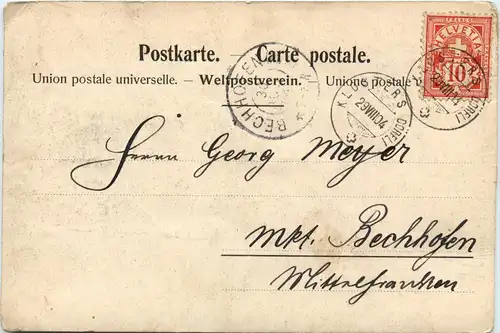 Postkarte. — Carte postale.
Union postale universelle. — Weltpostverein. — Unione postale
HELVETIA
FRANCO
10
BECHHOFEN
KLOSTERS DÖRFLI
29.VIII.04
Herrn Georg Meyer
mkt. Bechhofen
Mittelfranken